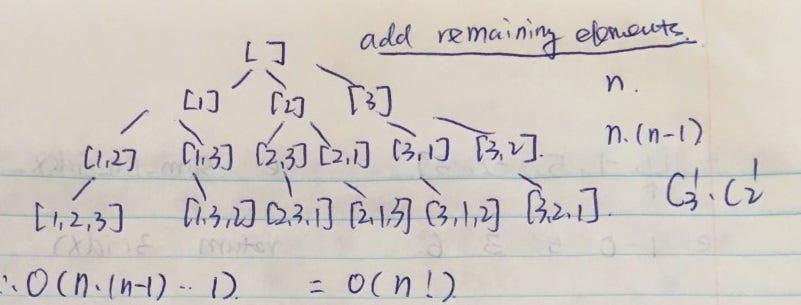 add remaining elements.
[ ]
[1] [2] [3] n.
[1,2] [1,3] [2,3] [2,1] [3,1] [3,2]. n.(n-1)
[1,2,3] [1,3,2] [2,3,1] [2,1,3] [3,1,2] [3,2,1]. C₃¹·C₂¹
∴ O(n·(n-1)··1) = O(n!)